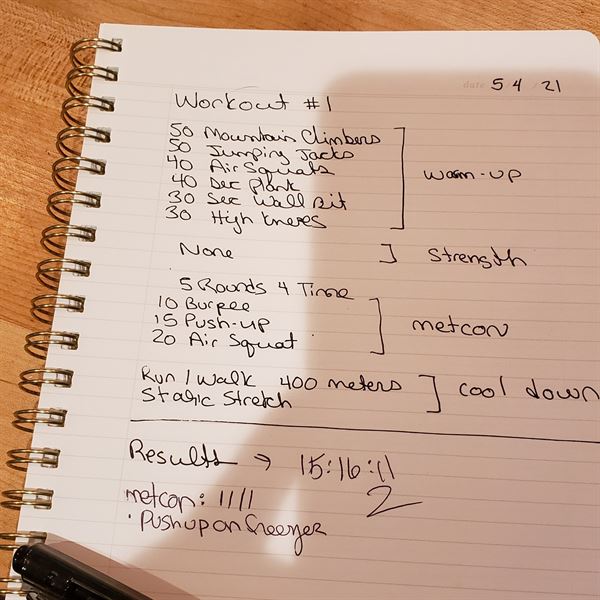 date 5 4 / 21
Workout #1
50 Mountain Climbers
50 Jumping Jacks
40 Air Squats
40 Sec Plank
30 Sec Wall Sit
30 High Knees
warm-up
None
Strength
5 Rounds 4 Time
10 Burpee
15 Push-up
20 Air Squat
metcon
Run / Walk 400 meters
Static Stretch
cool down
Results → 15:16:11
metcon: 1111
2
• Push up on